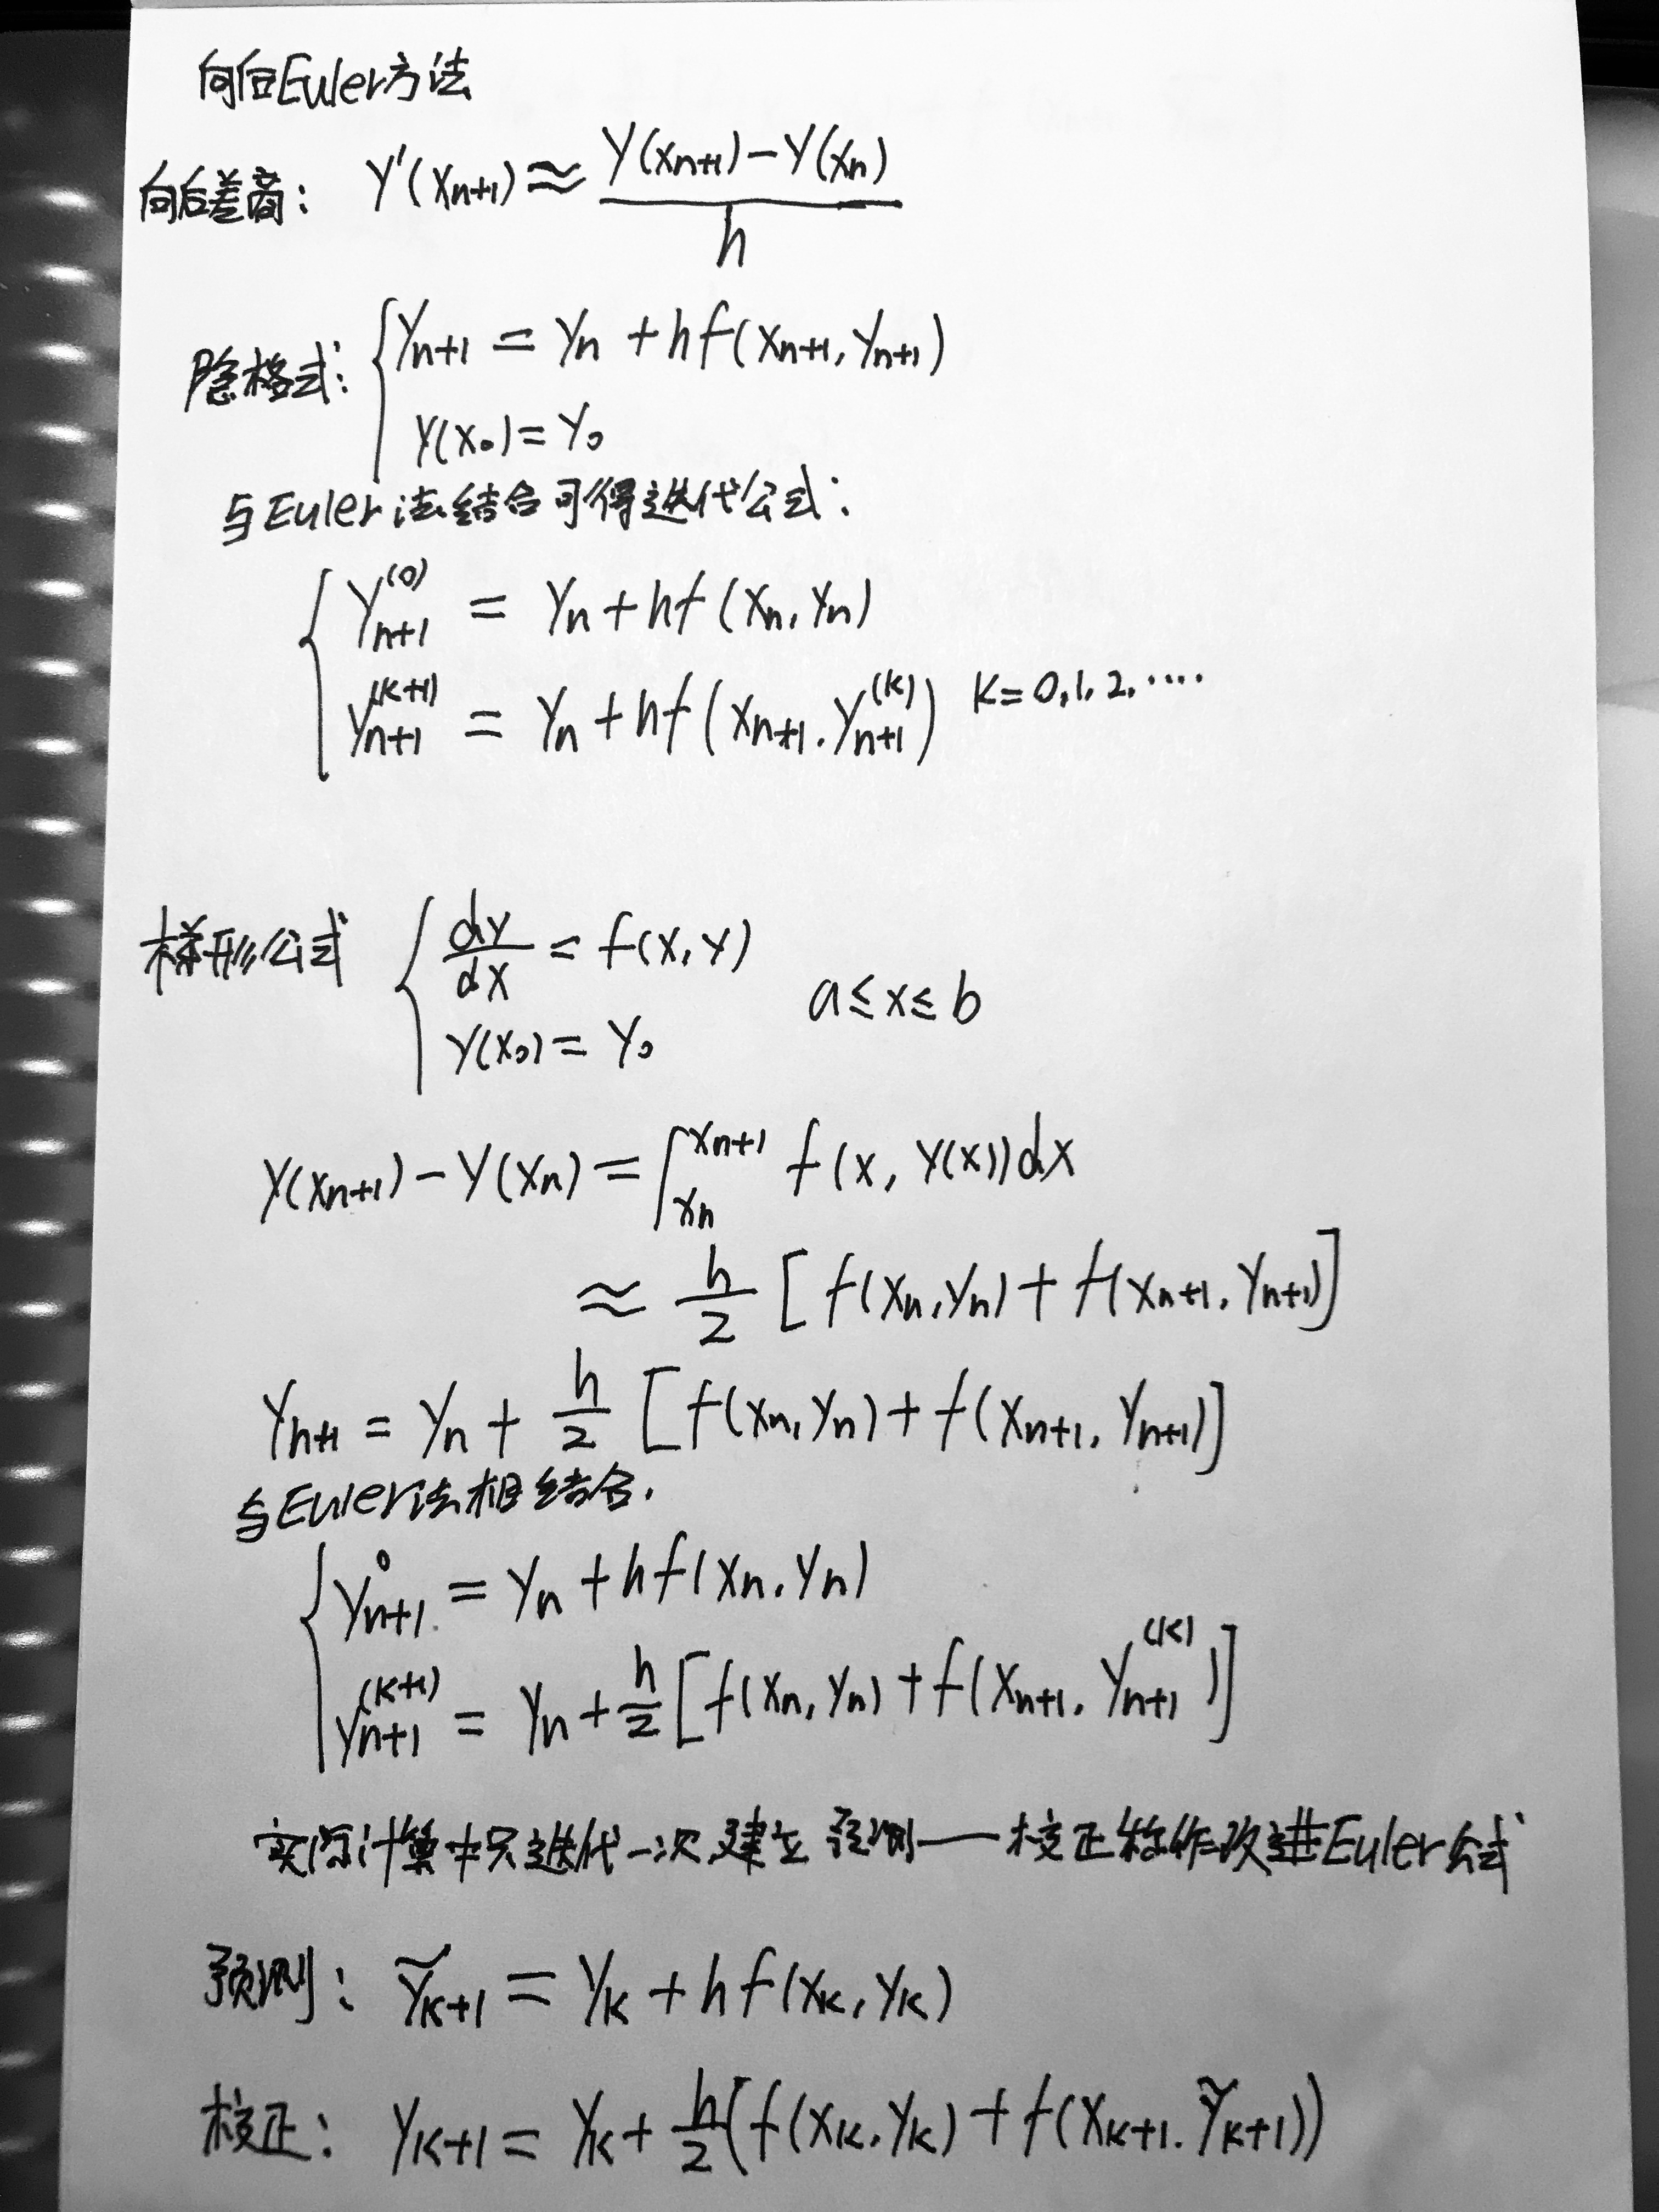 向后Euler方法
向后差商: y'(xₙ₊₁) ≈ (y(xₙ₊₁) - y(xₙ)) / h
隐格式: { yₙ₊₁ = yₙ + hf(xₙ₊₁, yₙ₊₁)
y(x₀) = y₀
与Euler法结合可得迭代公式:
{ yₙ₊₁⁽⁰⁾ = yₙ + hf(xₙ, yₙ)
yₙ₊₁⁽ᵏ⁺¹⁾ = yₙ + hf(xₙ₊₁, yₙ₊₁⁽ᵏ⁾) k = 0, 1, 2, ····
梯形公式 { dy/dx = f(x, y)
y(x₀) = y₀ a ≤ x ≤ b
y(xₙ₊₁) - y(xₙ) = ∫_{xₙ}^{xₙ₊₁} f(x, y(x))dx
≈ h/2 [f(xₙ, yₙ) + f(xₙ₊₁, yₙ₊₁)]
yₙ₊₁ = yₙ + h/2 [f(xₙ, yₙ) + f(xₙ₊₁, yₙ₊₁)]
与Euler法相结合.
{ yₙ₊₁⁰ = yₙ + hf(xₙ, yₙ)
yₙ₊₁⁽ᵏ⁺¹⁾ = yₙ + h/2 [f(xₙ, yₙ) + f(xₙ₊₁, yₙ₊₁⁽ᵏ⁾)]
实际计算中只迭代一次,建立预测——校正称作改进Euler公式
预测: ỹₖ₊₁ = yₖ + hf(xₖ, yₖ)
校正: yₖ₊₁ = yₖ + h/2 (f(xₖ, yₖ) + f(xₖ₊₁, ỹₖ₊₁))